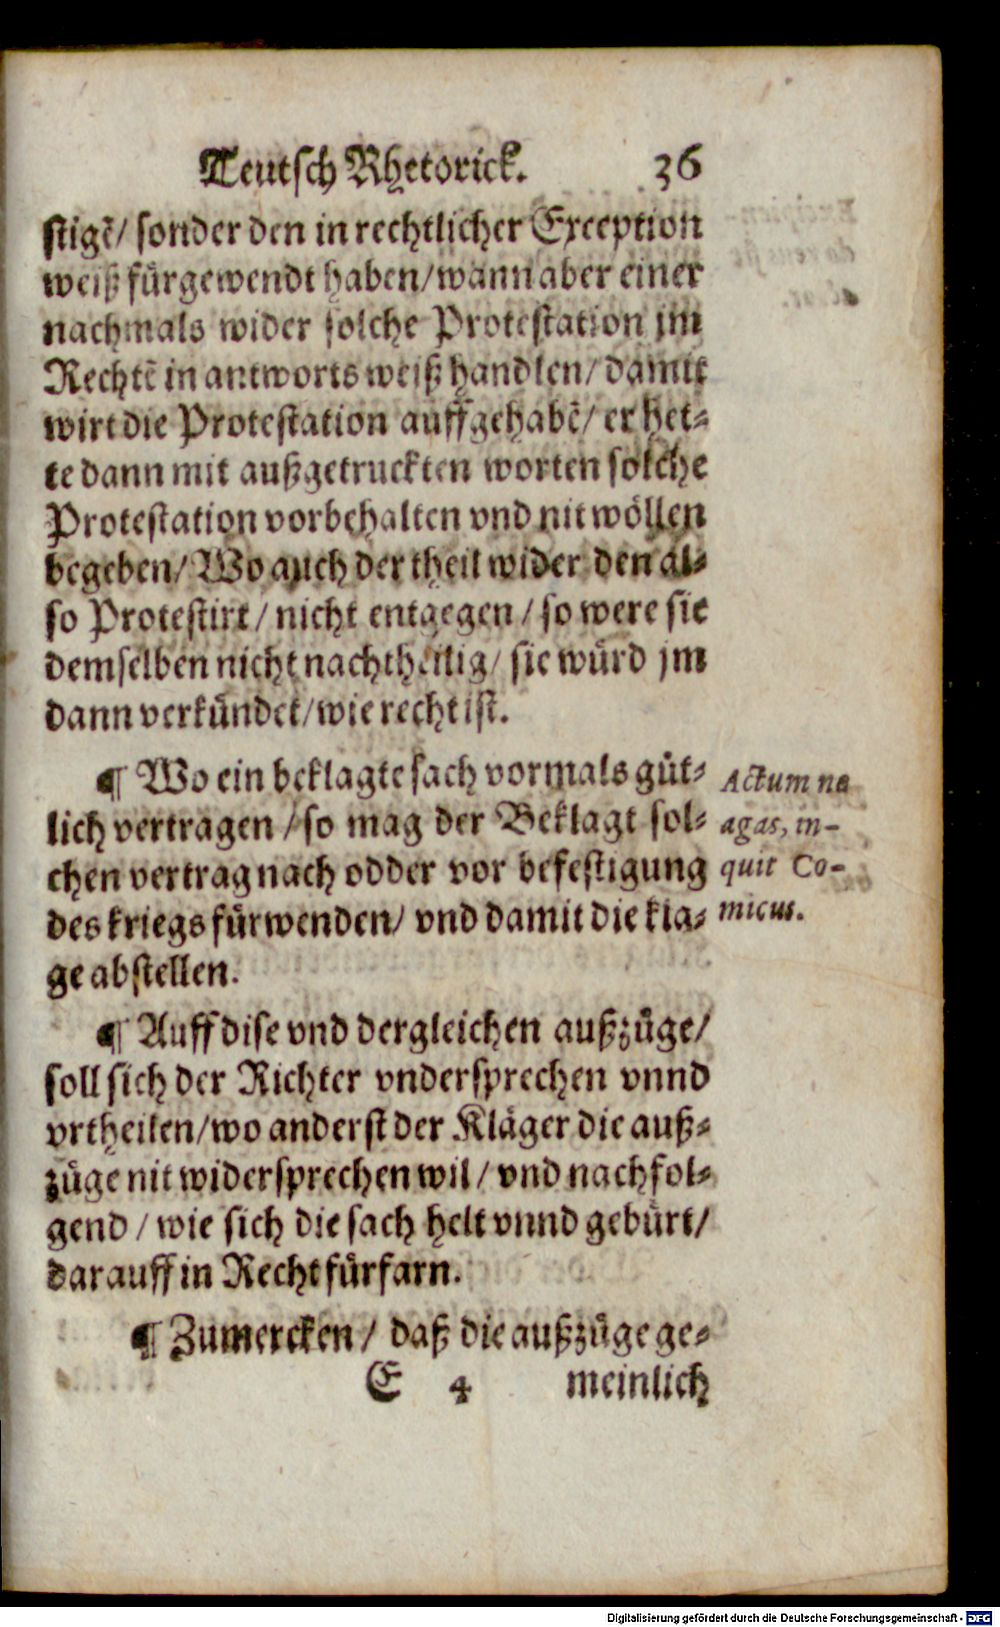 Teutsch Rhetorick. 36
stigẽ/ sonder den in rechtlicher Exception
weiß fürgewendt haben/wann aber einer
nachmals wider solche Protestation jm
Rechtẽ in antworts weiß handlen/ damit
wirt die Protestation auffgehabẽ/ er het⸗
te dann mit außgetruckten worten solche
Protestation vorbehalten vnd nit wöllen
begeben/ Wo auch der theil wider den al⸗
so Protestirt/ nicht entgegen/ so were sie
demselben nicht nachtheilig/ sie würd jm
dann verkündet/wie recht ist.
¶ Wo ein beklagte sach vormals güt⸗
lich vertragen/ so mag der Beklagt sol⸗
chen vertrag nach odder vor befestigung
des kriegs fürwenden/ vnd damit die kla⸗
ge abstellen.
Actum ne
agas, in-
quit Co-
micus.
¶ Auff dise vnd dergleichen außzüge/
soll sich der Richter vndersprechen vnnd
vrtheilen/wo anderst der Kläger die auß⸗
züge nit widersprechen wil/ vnd nachfol⸗
gend/ wie sich die sach helt vnnd gebürt/
darauff in Recht fürfarn.
¶ Zumercken/ daß die außzüge ge⸗
E 4 meinlich
Digitalisierung gefördert durch die Deutsche Forschungsgemeinschaft - DFG